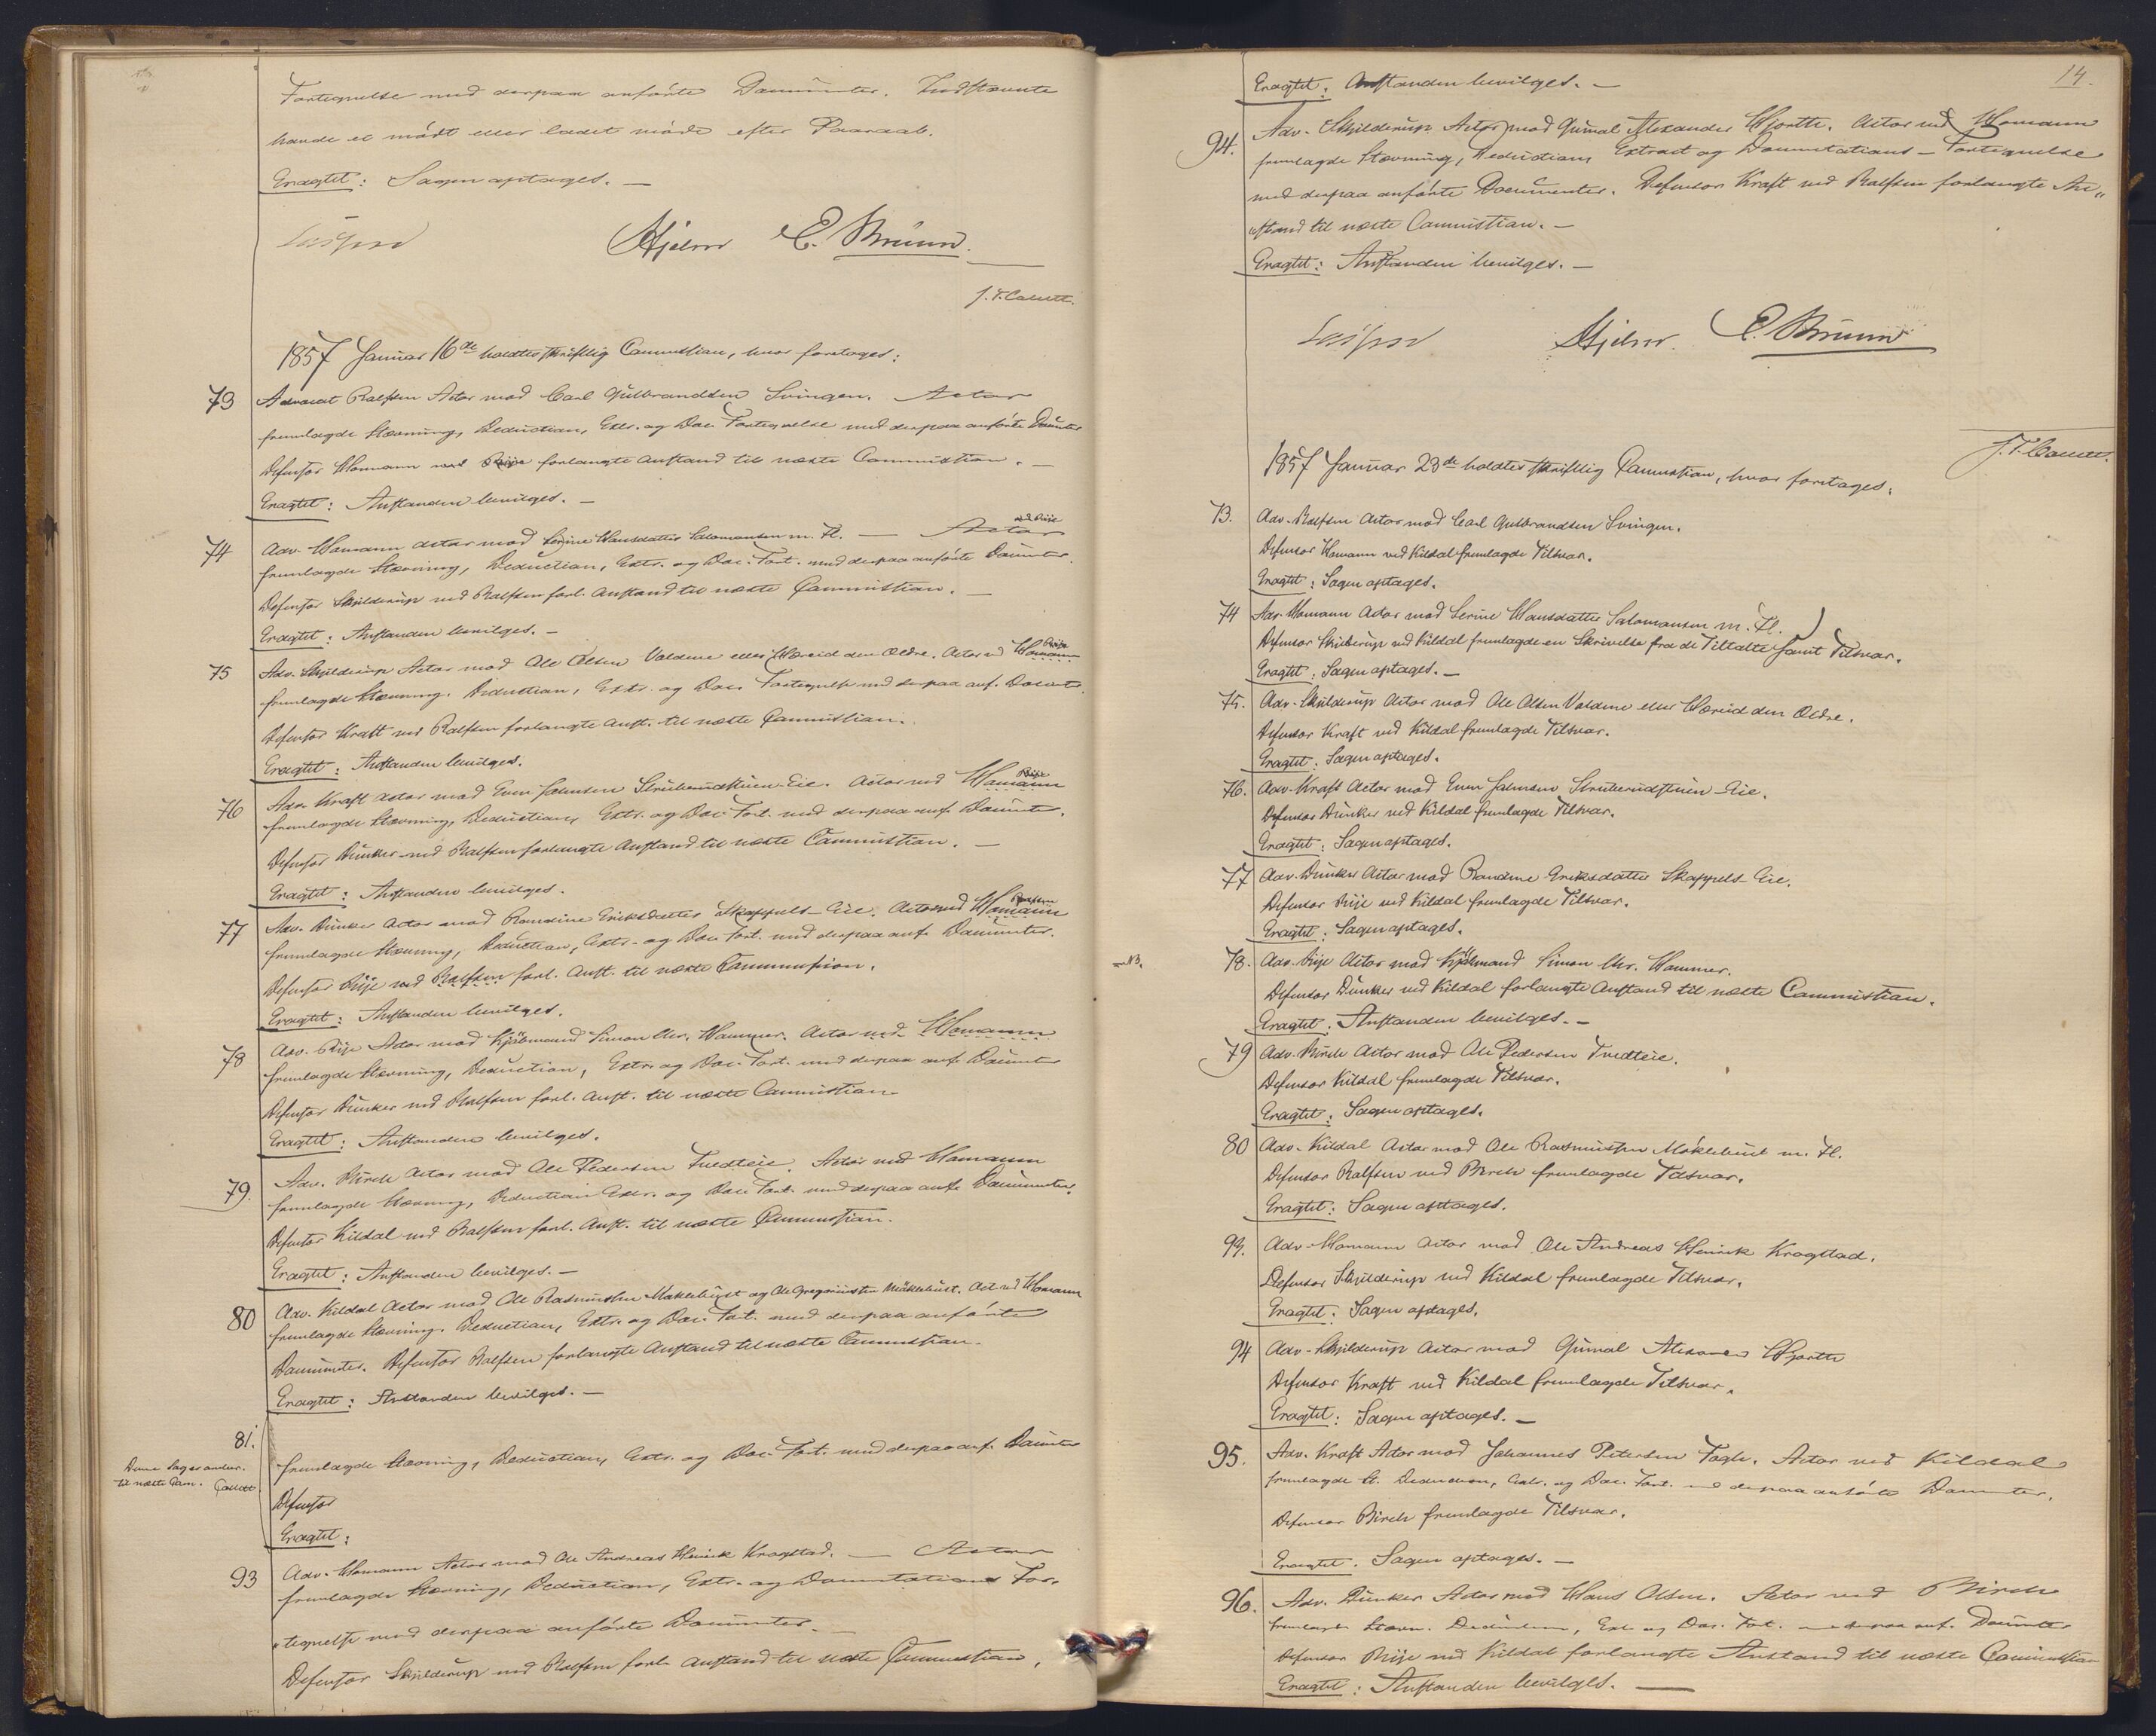 Fortegnelse med derpaa anførte Documenter. Indstævnte
havde ei mødt eller ladet møde efter Paaraab.
Eragtet: Sagen optages. —
Lasson Hjelm C. Bruun.
J. F. Collett.
1857 Januar 16de holdtes skriftlig Commission, hvor foretoges:
73 Advocat Ralfsen Actor mod Carl Gulbrandsen Svingen. Actor
fremlagde Stævning, Deduction, Extr. og Doc. Fortegnelse med derpaa anførte Docmter
Defensor Homann ved Rije forlangte Anstand til næste Commission. —
Eragtet: Anstanden bevilges. —
74 Adv. Homann Actor mod Serine Hansdatter Salomonsen m. Fl. — Actor ved Rije
fremlagde Stævning, Deduction, Extr. og Doc. Fort. med derpaa anførte Docmter.
Defensor Skjilderup ved Ralfsen forl. Anstand til næste Commission. —
Eragtet: Anstanden bevilges. —
75 Adv. Skjilderup Actor mod Ole Olsen Valdene eller Hæreid den Ældre. Actor v. Homann Rije
fremlagde Stævning, Deduction, Extr. og Doc. Fortegnelse med derpaa anf. Docmter.
Defensor Kraft ved Ralfsen forlangte Anst. til næste Commission.
Eragtet: Anstanden bevilges.
76 Adv. Kraft Actor mod Even Johnsen Struberudstuen-Eie. Actor ved Homann Rije
fremlagde Stævning, Deduction, Extr. og Doc. Fort. med derpaa anf. Docmt.
Defensor Dunker ved Ralfsen forlangte Anstand til næste Commission. —
Eragtet: Anstanden bevilges.
77 Adv. Dunker Actor mod Randine Eriksdatter Skappels-Eie. Actor ved Homann
fremlagde Stævning, Deduction, Extr. og Doc. Fort. med derpaa anf. Documenter.
Defensor Rije ved Ralfsen forl. Anst. til næste Commission.
Eragtet: Anstanden bevilges.
78 Adv. Rije Actor mod Kjøbmand Simon Chr. Hammer. Actor ved Homann
fremlagde Stævning, Deduction, Extr. og Doc. Fort. med derpaa anf. Docmter
Defensor Dunker ved Ralfsen forl. Anst. til næste Commission.
Eragtet: Anstanden bevilges.
79. Adv. Birch Actor mod Ole Pedersen Tvedteie. Actor ved Homann
fremlagde Stævning, Deduction Extr. og Doc. Fort. med derpaa anf. Documenter.
Defensor Kildal ved Ralfsen forl. Anst. til næste Commission.
Eragtet: Anstanden bevilges. —
80 Adv. Kildal Actor mod Ole Rasmussen Møklebust og Ole Gregoriussen Møklebust. Act. ved Homann
fremlagde Stævning, Deduction, Extr. og Doc. Fort. med derpaa anførte
Documenter. Defensor Ralfsen forlangte Anstand til næste Commission.
Eragtet: Anstanden bevilges. —
81.
fremlagde Stævning, Deduction, Extr. og Doc. Fort. med derpaa anf. Docmter
Denne Sag er
til næste Com. Collett
Defensor
Eragtet:
93 Adv. Homann Actor mod Ole Andreas Henrik Kragstad. — Actor
fremlagde Stævning, Deduction, Extr. og Documentations For-
tegnelse med derpaa anførte Documenter. —
Defensor Skjilderup ved Ralfsen forl. Anstand til næste Commission.
14.
Eragtet: Anstanden bevilges. —
94. Adv. Skjilderup Actor mod Gumal Alexander Hjorth. Actor ved Homann
fremlagde Stævning, Deduction, Extract og Documentations-Fortegnelse
med derpaa anførte Documenter. Defensor Kraft ved Ralfsen forlangte An-
stand til næste Commission. —
Eragtet: Anstanden bevilges. —
Lasson Hjelm. C. Bruun
J. F. Collett.
1857 Januar 23de holdtes skriftlig Commission, hvor foretoges:
73. Adv. Ralfsen Actor mod Carl Gulbrandsen Svingen.
Defensor Homann ved Kildal fremlagde Tilsvar.
Eragtet: Sagen optages.
74 Adv. Homann Actor mod Serine Hansdatter Salomonsen m. Fl.
Defensor Skjilderup ved Kildal fremlagde en Skrivelse fra de Tiltalte samt Tilsvar.
Eragtet: Sagen optages. —
75. Adv. Skjilderup Actor mod Ole Olsen Valdene eller Hæreid den Ældre.
Defensor Kraft ved Kildal fremlagde Tilsvar.
Eragtet: Sagen optages.
76. Adv. Kraft Actor mod Even Johnsen Struberudstuen-Eie.
Defensor Dunker ved Kildal fremlagde Tilsvar.
Eragtet: Sagen optages.
77 Adv. Dunker Actor mod Randine Eriksdatter Skappels-Eie.
Defensor Rije ved Kildal fremlagde Tilsvar.
Eragtet: Sagen optages.
NB. 78. Adv. Rije Actor mod Kjøbmand Simon Chr. Hammer.
Defensor Dunker ved Kildal forlangte Anstand til næste Commission.
Eragtet: Anstanden bevilges. —
79 Adv. Birch Actor mod Ole Pedersen Tvedteie.
Defensor Kildal fremlagde Tilsvar.
Eragtet: Sagen optages.
80 Adv. Kildal Actor mod Ole Rasmussen Møklebust m. Fl.
Defensor Ralfsen ved Birch fremlagde Tilsvar.
Eragtet: Sagen optages.
93. Adv. Homann Actor mod Ole Andreas Henrik Kragstad.
Defensor Skjilderup ved Kildal fremlagde Tilsvar.
Eragtet: Sagen optages.
94 Adv. Skjilderup Actor mod Gumal Alexander Hjorth
Defensor Kraft ved Kildal fremlagde Tilsvar.
Eragtet: Sagen optages. —
95. Adv. Kraft Actor mod Johannes Petersen Fagle. Actor ved Kildal
fremlagde St. Deduction, Extr. og Doc. Fort. med derpaa anførte Docmter.
Defensor Birch fremlagde Tilsvar.
Eragtet. Sagen optages. —
96. Adv. Dunker Actor mod Hans Olsen. Actor ved Birch
fremlagde Stævn. Deduction, Ext. og Doc. Fort. med derpaa anf. Docmter
Defensor Rije ved Kildal forlangte Anstand til næste Commission
Eragtet: Anstanden bevilges. —